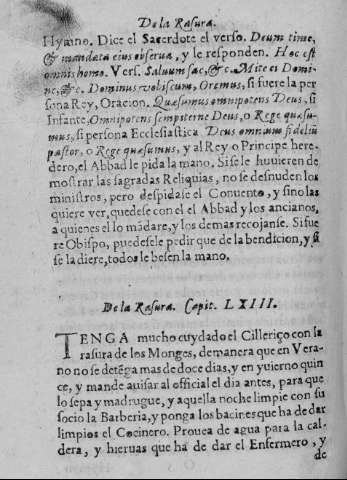 De la Rasura.
Hymno. Dice el Sacerdote el verso. Deum time,
& mandata eius obserua, y le responden. Hoc est
omnis homo. Vers. Saluum fac, &c. Mitte ei Domi-
ne, &c. Dominus vobiscum, Oremus, si fuere la per
sona Rey, Oracion. Quæsumus omnipotens Deus, si
Infante, Omnipotens sempiterne Deus, o Rege quæsu-
mus, si persona Ecclesiastica. Deus omnium fideliũ
pastor, o Rege quæsumus, y al Rey o Principe here-
dero, el Abbad le pida la mano. Si se le huuieren de
mostrar las sagradas Reliquias, no se desnuden los
ministros, pero despidase el Conuento, y sino las
quiere ver, quedese con el Abbad y los ancianos,
a quienes el lo mãdare, y los demas recojanse. Si fue
re Obispo, puedesele pedir que de la bendicion, y si
se la diere, todos le besen la mano.
De la Rasura. Capit. LXIII.
TENGA mucho cuydado el Cilleriço con la
rasura de los Monges, de manera que en Vera-
no no se detẽga mas de doce dias, y en yuierno quin
ce, y mande auisar al official el dia antes, para que
lo sepa y madrugue, y aquella noche limpie con su
socio la Barberia, y ponga los bacines que ha de dar
limpios el Cocinero. Prouea de agua para la cal-
dera, y hieruas que ha de dar el Enfermero, y
de